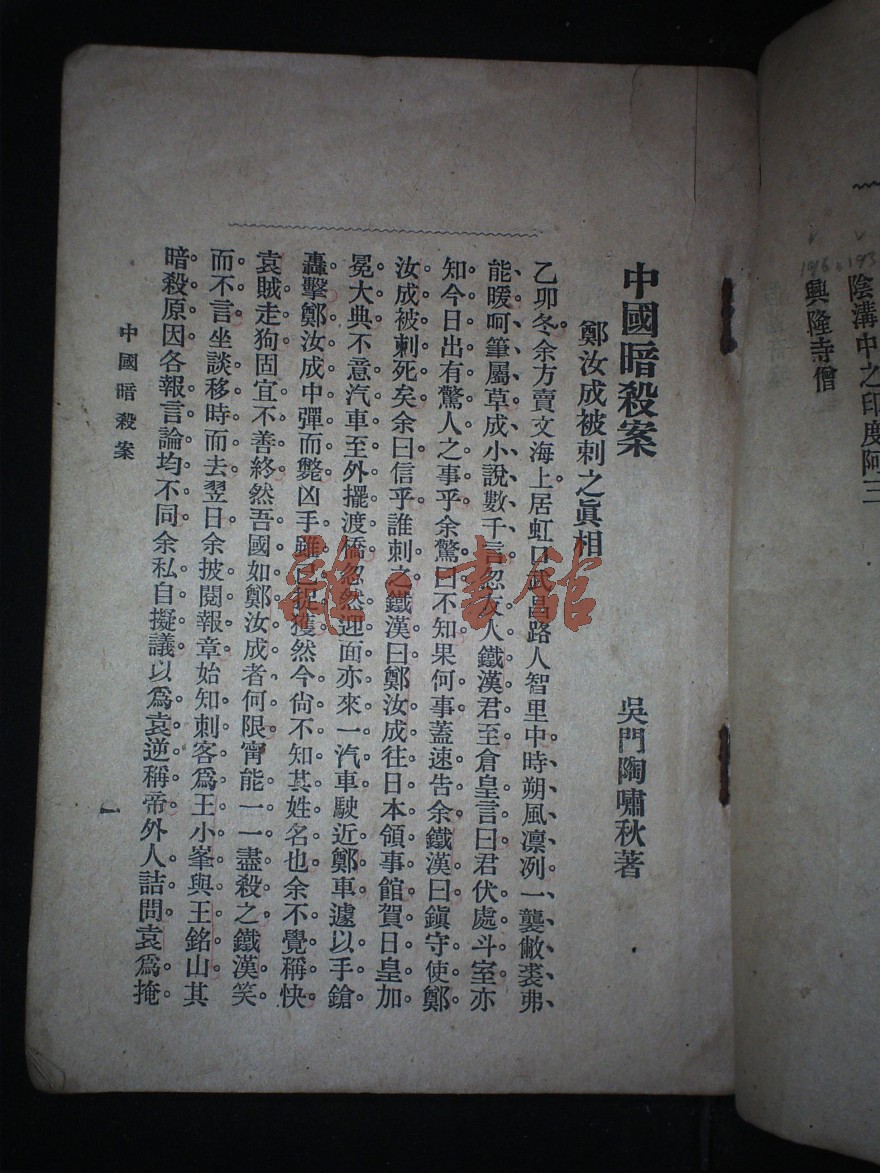 陰溝中之印度阿三
興隆寺僧
中國暗殺案
吳門陶嘯秋著
鄭汝成被刺之眞相
乙卯冬余方賣文海上居虹口武昌路人智里中時朔風凛洌一襲敝裘弗
能暖呵筆屬草成小說數千言忽友人鐵漢君至倉皇言曰君伏處斗室亦
知今日出有驚人之事乎余驚曰不知果何事蓋速告余鐵漢曰鎭守使鄭
汝成被刺死矣余曰信乎誰刺之鐵漢曰鄭汝成往日本領事館賀日皇加
冕大典不意汽車至外擺渡橋忽然迎面亦來一汽車駛近鄭車遽以手鎗
轟擊鄭汝成中彈而斃凶手雖已捉獲然今尙不知其姓名也余不覺稱快
袁賊走狗固宜不善終然吾國如鄭汝成者何限甯能一一盡殺之鐵漢笑
而不言坐談移時而去翌日余披閱報章始知刺客爲王小峯與王銘山其
暗殺原因各報言論均不同余私自擬議以爲袁逆稱帝外人詰問袁爲掩
中國暗殺案
一
雜·書館